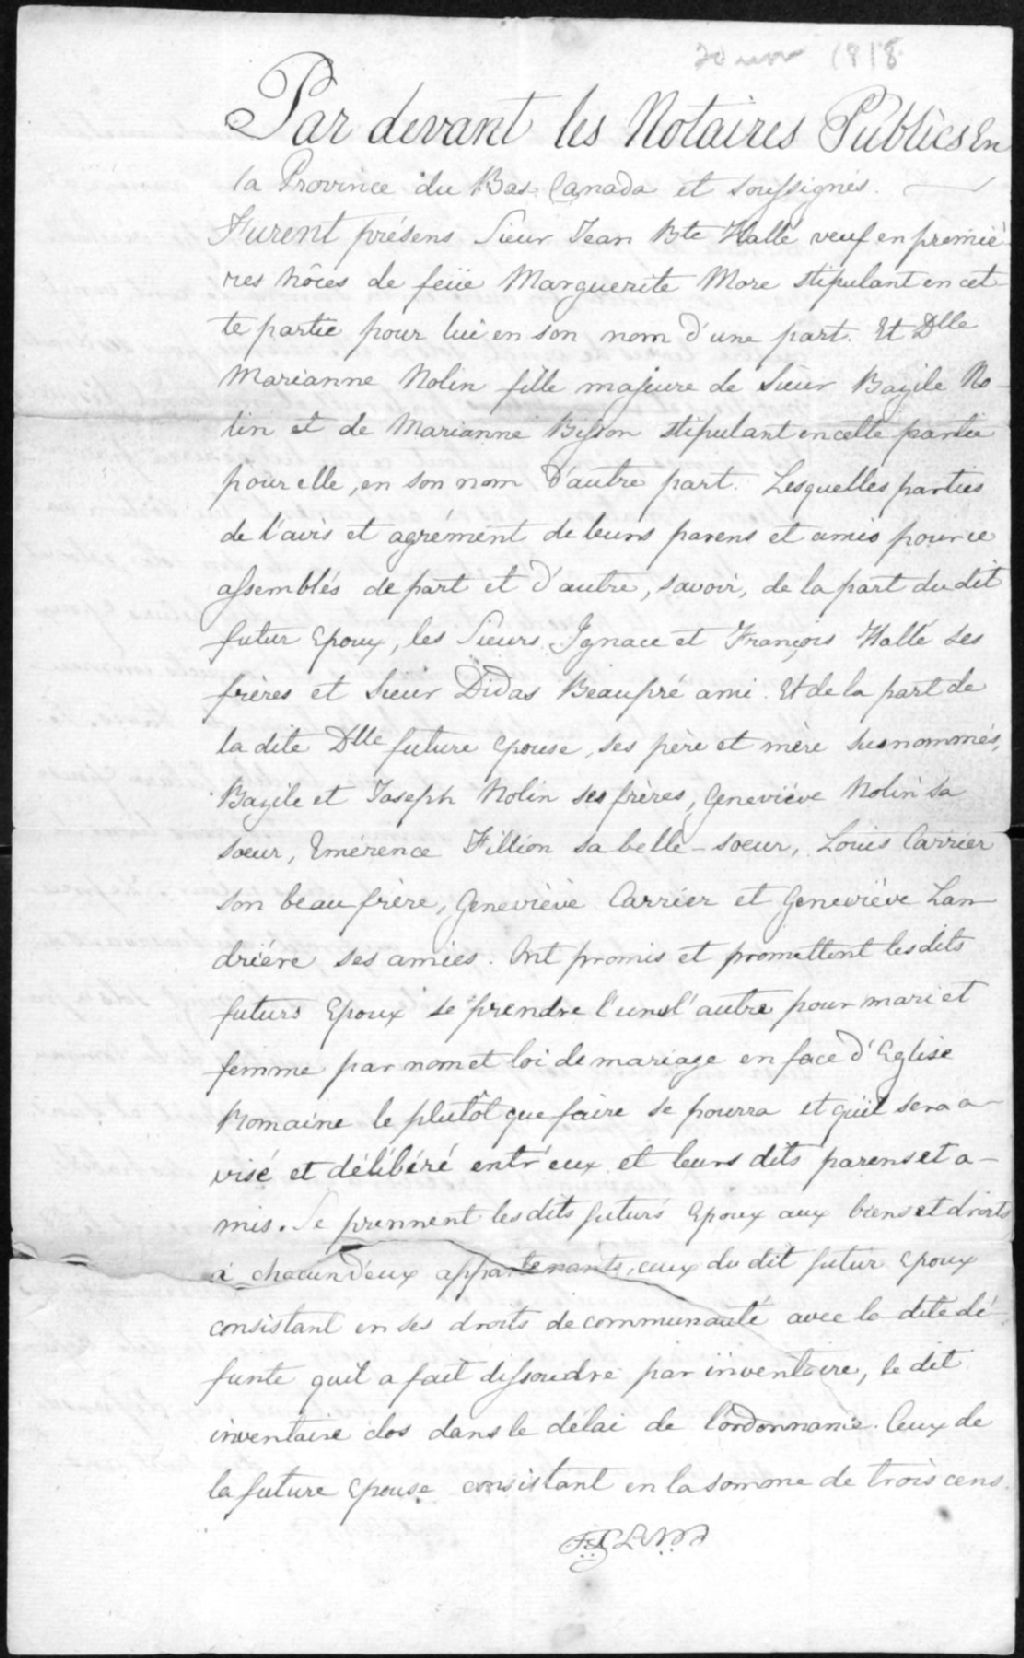 1818
Par devant les Notaires Publics En
la Province du Bas Canada et soussignés.
Furent présens Sieur Jean Bte Hallé veuf en premiè-
res nôces de feüe Marguerite More stipulant en cet-
te partie pour lui en son nom d'une part. Et Dlle
Marianne Nolin fille majeure de Sieur Bazile No-
lin et de Marianne Bisson stipulant en cette partie
pour elle, en son nom d'autre part. Lesquelles parties
de l'avis et agrément de leurs parens et amis pour ce
assemblés de part et d'autre, savoir, de la part du dit
futur Epoux, les Sieurs Ignace et François Hallé ses
frères et Sieur Didas Beaupré ami. Et de la part de
la dite Dlle future Epouse, ses père et mère susnommés,
Bazile et Joseph Nolin ses frères, Geneviève Nolin sa
soeur, Emérence Fillion sa belle-soeur, Louis Carrier
son beau frère, Geneviève Carrier et Geneviève Lan-
driére ses amies. Ont promis et promettent les dits
futurs Epoux se prendre l'un l'autre pour mari et
femme par nom et loi de mariage en face d'Eglise
Romaine le plutôt que faire se pourra et qu'il sera a-
visé et délibéré entr'eux et leurs dits parens et a-
mis. Se prennent les dits futurs Epoux aux biens et droits
à chacun d'eux appartenants, ceux du dit futur Epoux
consistant en ses droits de communauté avec la dite dé-
funte qu'il a fait dissoudre par inventaire, le dit
inventaire clos dans le délai de l'ordonnance. Ceux de
la future Epouse consistant en la somme de trois cens